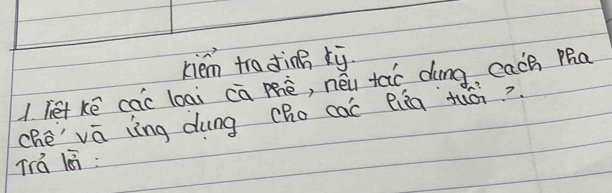 Kiểm tra định kỳ.
1. liệt kê các loại cà phê, nêu tác dụng, cách pha
chế và ứng dụng cho các lứa tuổi?.
Trả lời: